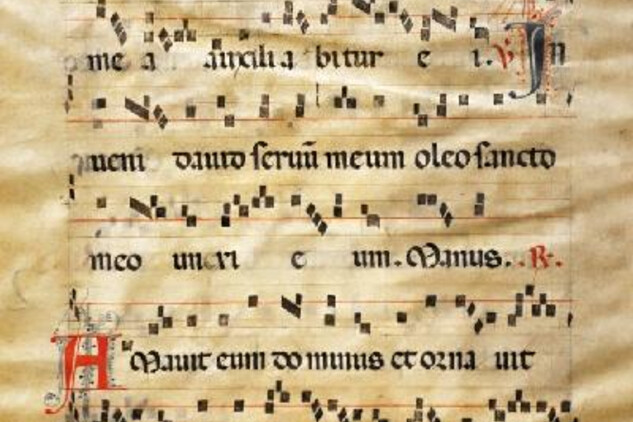 me a auxilia bitur e i. V In
ueni dauid seruū meum oleo sancto
meo unxi e um. Manus. R.
A Mauit eum do minus et orna uit